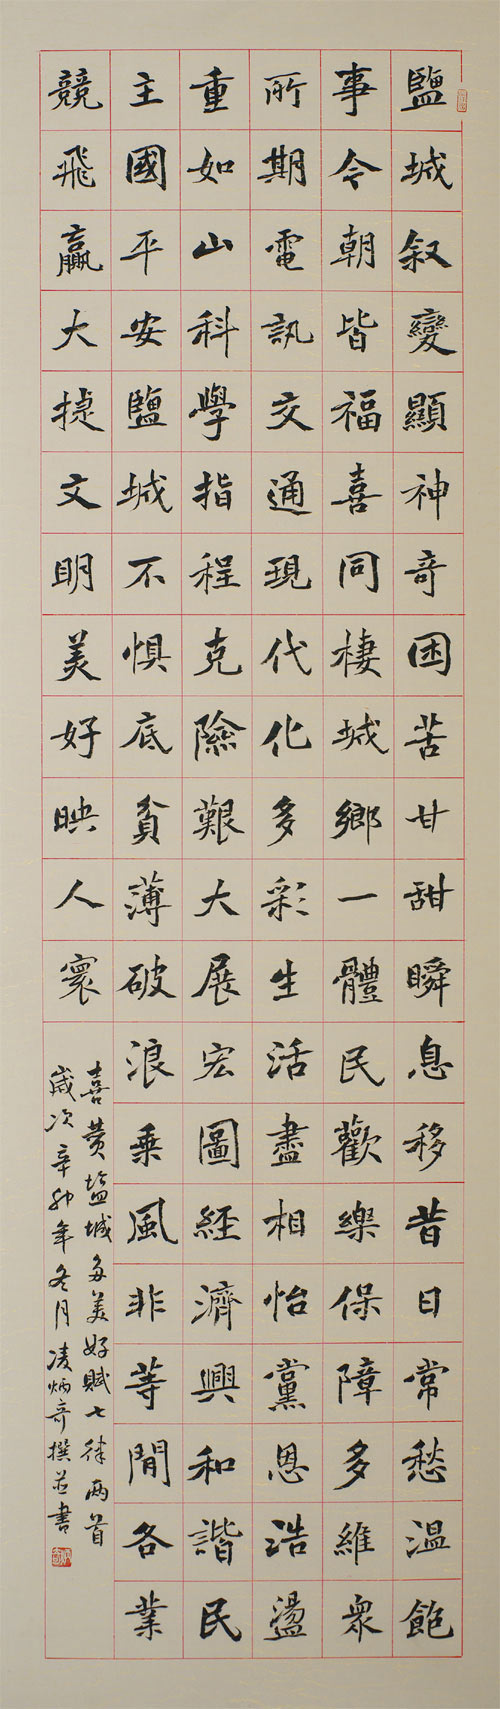 鹽城叙變顯神奇困苦甘甜瞬息移昔日常愁温飽
事今朝皆福喜同棲城鄉一體民歡樂保障多維衆
所期電訊交通現代化多彩生活盡相怡黨恩浩盪
重如山科學指程克險艱大展宏圖經濟興和諧民
主國平安鹽城不惧底貧薄破浪乘風非等閒各業
競飛贏大捷文明美好映人寰
喜贊塩城多美好賦七律兩首
歲次辛卯年冬月凌炳奇撰並書